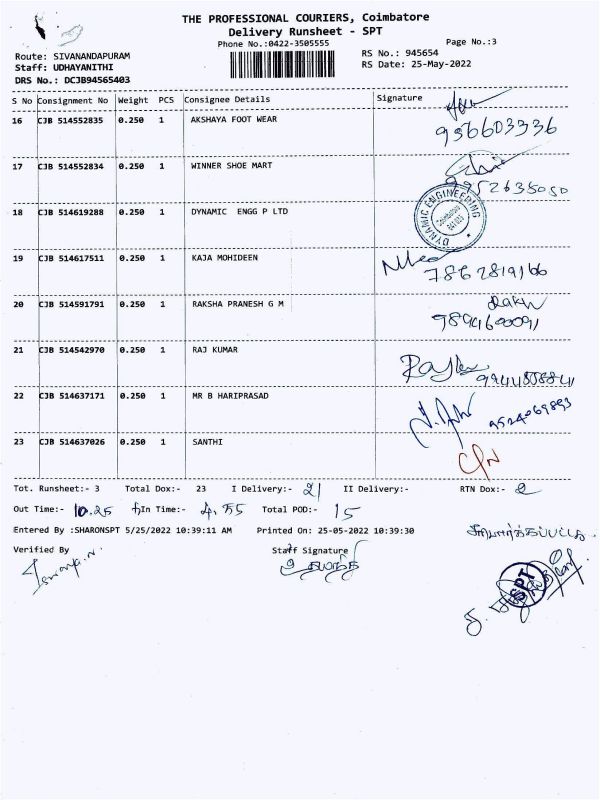 THE PROFESSIONAL COURIERS, Coimbatore
Delivery Runsheet - SPT
Phone No.:0422-3505555
Page No.:3
Route: SIVANANDAPURAM
Staff: UDHAYANITHI
DRS No.: DCJB94565403
RS No.: 945654
RS Date: 25-May-2022
S No Consignment No Weight PCS Consignee Details Signature
16 CJB 514552835 0.250 1 AKSHAYA FOOT WEAR
956603336
17 CJB 514552834 0.250 1 WINNER SHOE MART
9952635050
18 CJB 514619288 0.250 1 DYNAMIC ENGG P LTD
DYNAMIC ENGINEERING
Coimbatore
19 CJB 514617511 0.250 1 KAJA MOHIDEEN
7862819166
20 CJB 514591791 0.250 1 RAKSHA PRANESH G M
9894600091
21 CJB 514542970 0.250 1 RAJ KUMAR
22 CJB 514637171 0.250 1 MR B HARIPRASAD
23 CJB 514637026 0.250 1 SANTHI
Tot. Runsheet:- 3 Total Dox:- 23 I Delivery:- 21 II Delivery:- RTN Dox:- 2
Out Time:- 10.25 In Time:- 4.55 Total POD:- 15
Entered By :SHARONSPT 5/25/2022 10:39:11 AM Printed On: 25-05-2022 10:39:30
Verified By Staff Signature
SPT